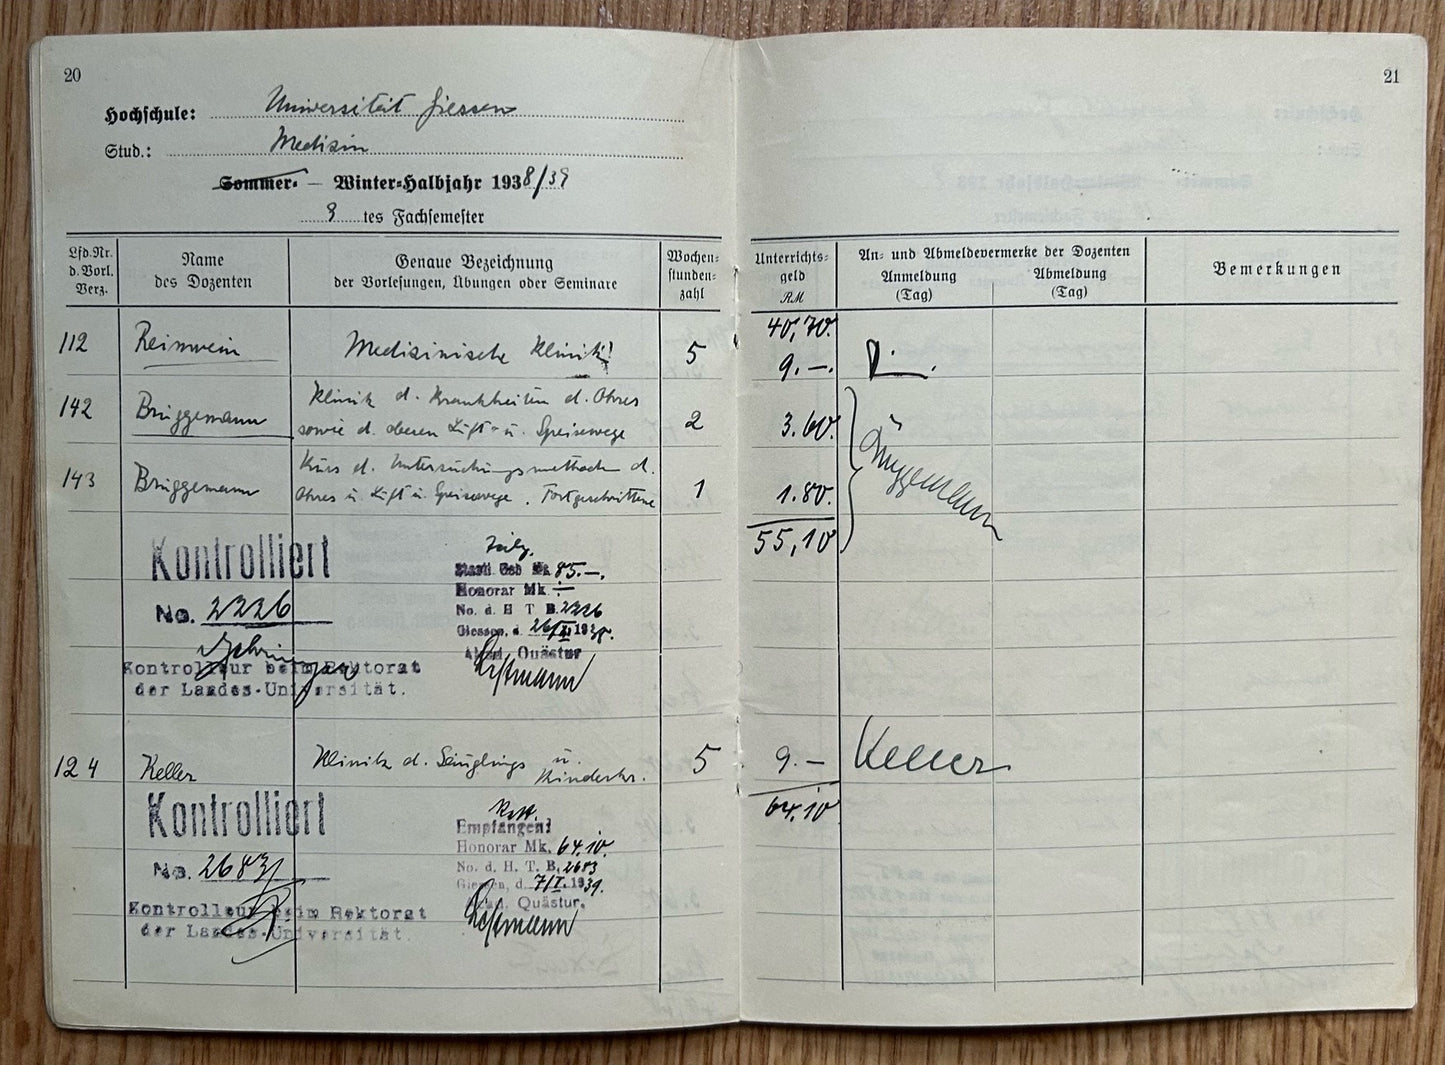 20
Hochschule: Universität Giessen
Stud.: Medizin
Sommer- – Winter-Halbjahr 1938/39
9 tes Fachsemester
Lfd.Nr. d. Vorl. Verz.
Name des Dozenten
Genaue Bezeichnung der Vorlesungen, Übungen oder Seminare
Wochen-stunden-zahl
112 Reinwein Medizinische Klinik 5
142 Brüggemann Klinik d. Krankheiten d. Ohres
sowie d. oberen Luft- u. Speisewege 2
143 Brüggemann Kurs d. Untersuchungsmethoden d.
Ohres u. Luft u. Speisewege. Fortgeschrittene 1
Kontrolliert
No. 2226
Kontrolleur beim Rektorat
der Landes-Universität.
Staatl. Geb Mk 85.—.
Honorar Mk —
No. d. H T B. 2226
Giessen, d. 26/XI 1938.
Akad. Quästur
124 Keller Klinik d. Säuglings u.
Kinderkr. 5
Kontrolliert
No. 2683
Kontrolleur beim Rektorat
der Landes-Universität.
Empfangen!
Honorar Mk. 64.10.
No. d. H. T. B. 2683
Giessen, d. 7/I. 1939.
Akad. Quästur.
21
Unterrichts-geld RM
An- und Abmeldevermerke der Dozenten
Anmeldung (Tag)
Abmeldung (Tag)
Bemerkungen
40,70.
9.—.
3.60.
1.80.
55,10
Brüggemann
9.— Keller
64.10